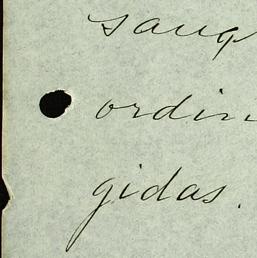 sang
ordin
gidas.